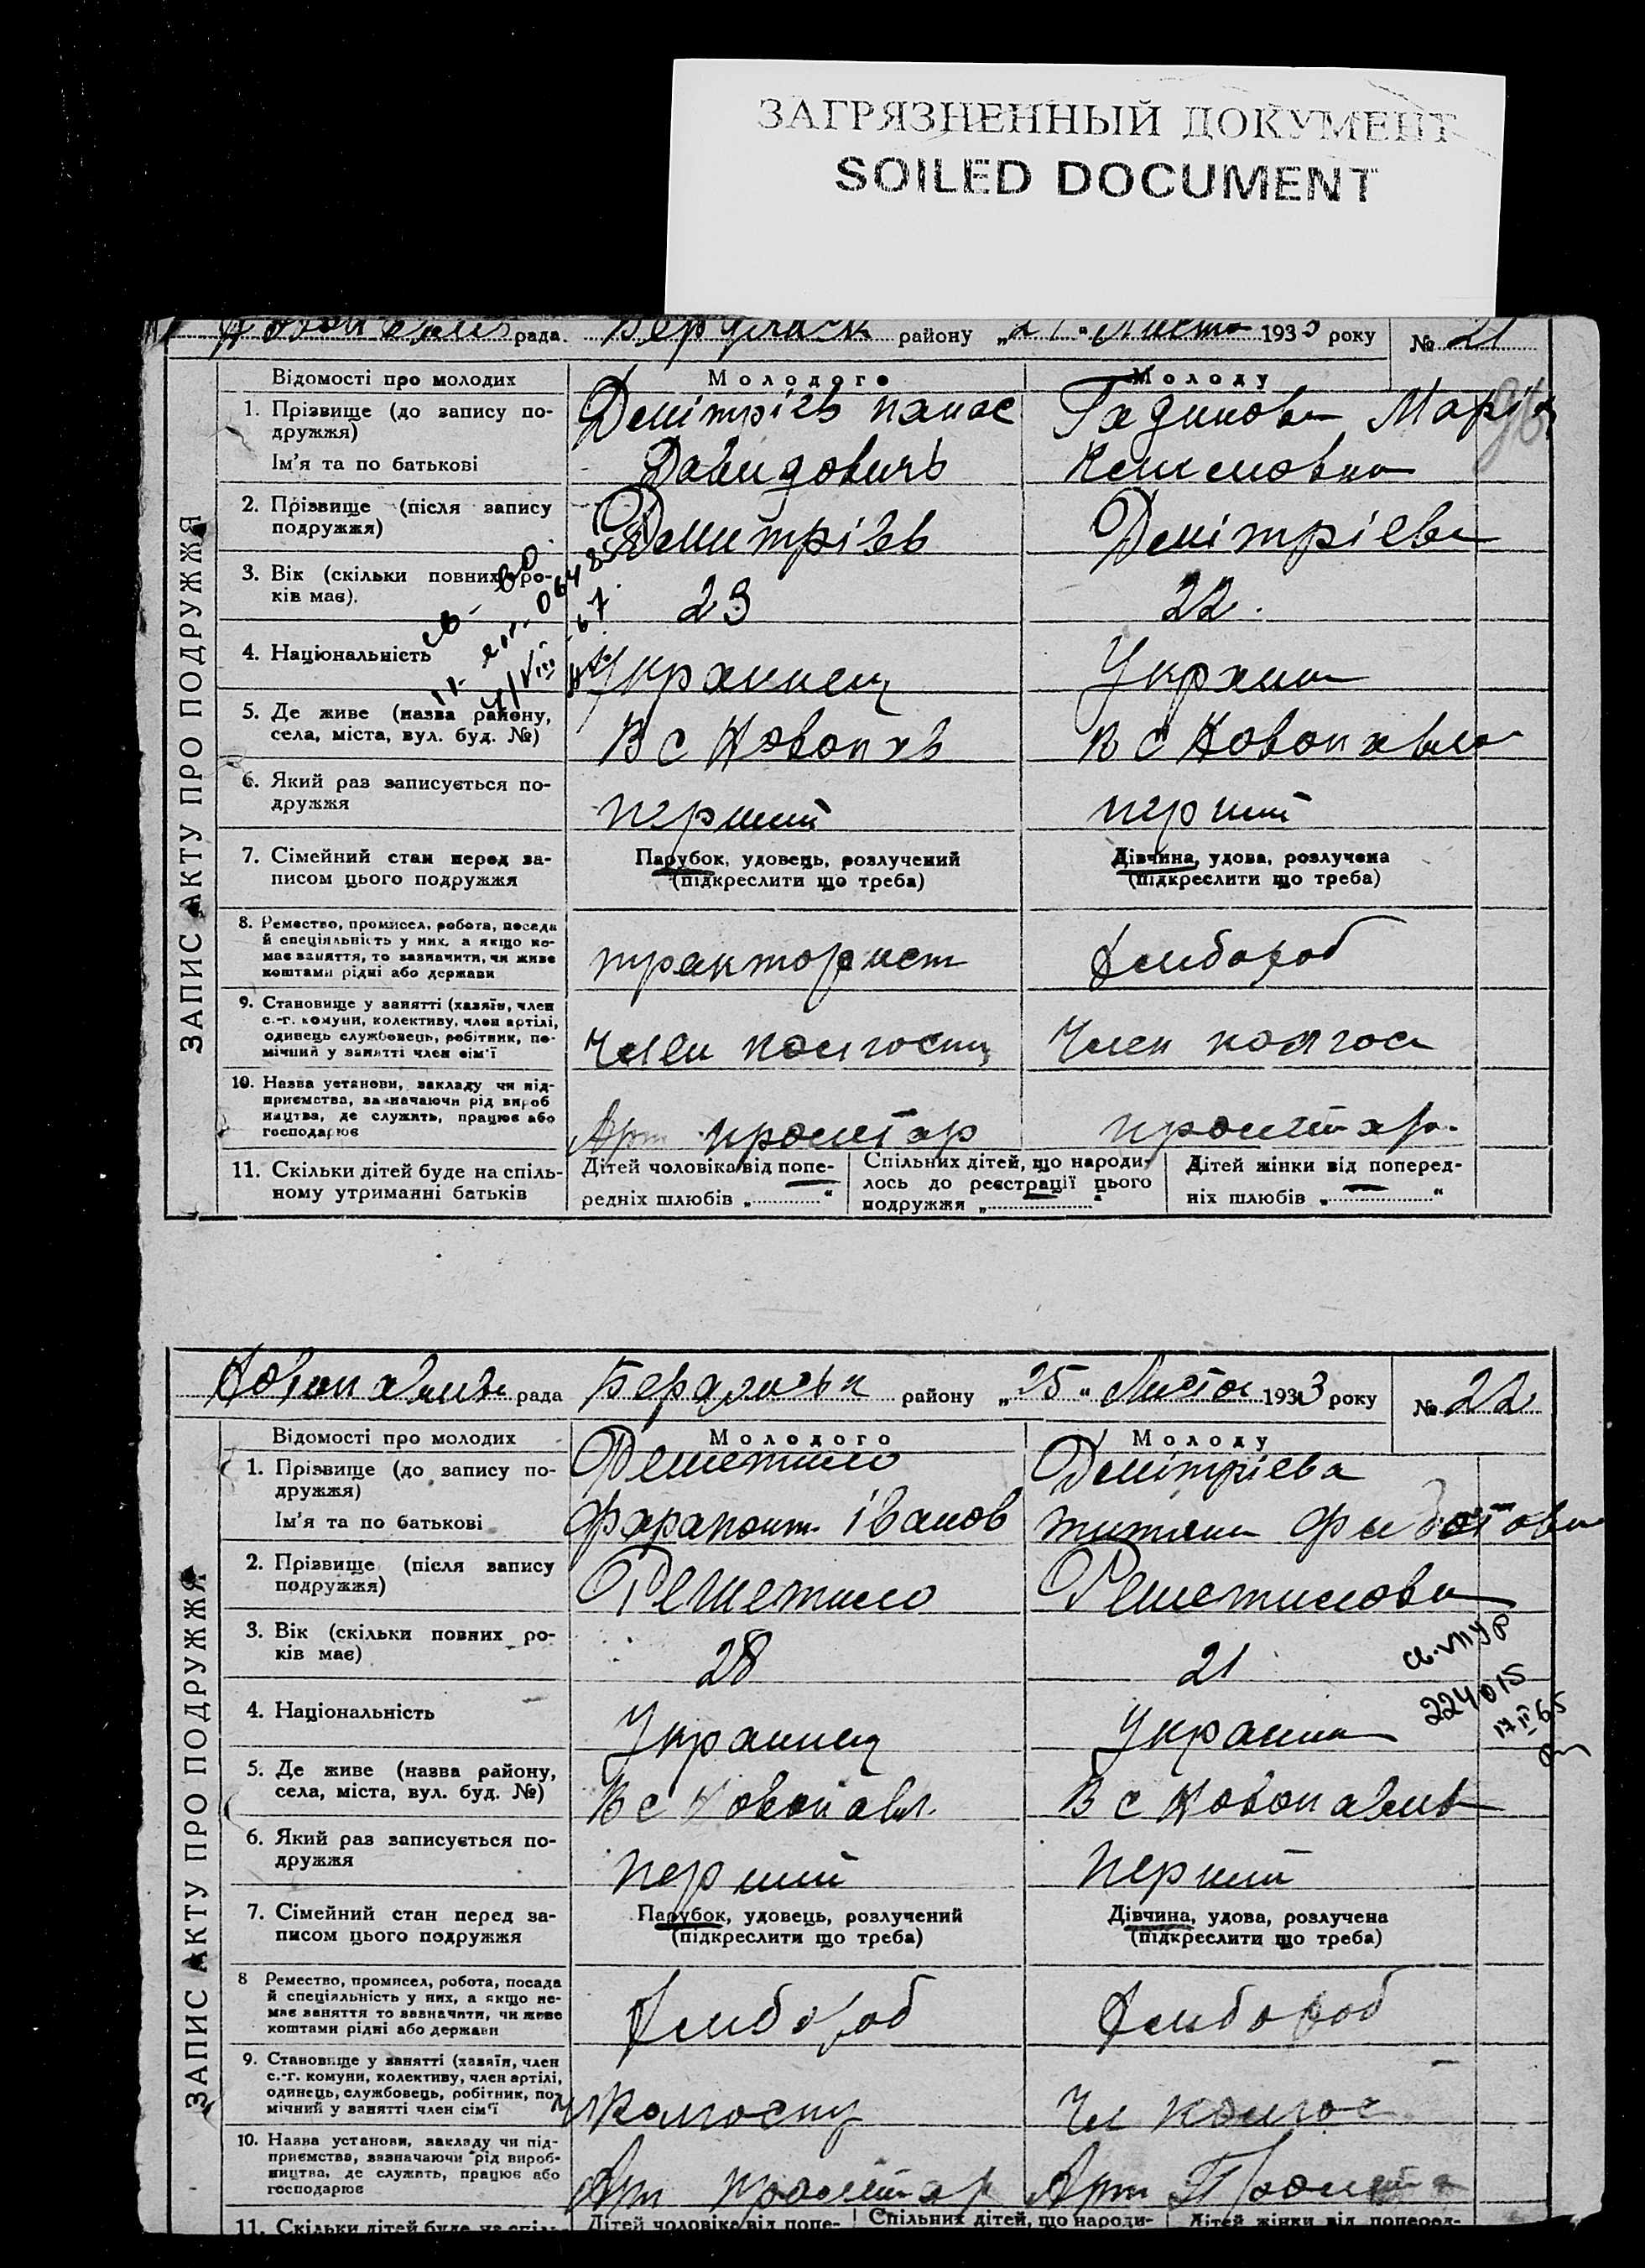 ЗАГРЯЗНЕННЫЙ ДОКУМЕНТ
SOILED DOCUMENT
рада району 193 року № 21
ЗАПИС АКТУ ПРО ПОДРУЖЖЯ
Відомості про молодих Молодого Молоду
1. Прізвище (до запису по-
дружжя)
Демітріев панас Марія
Ім'я та по батькові
Давидовичъ
2. Прізвище (після запису
подружжя)
Демитріев Демітріева
3. Вік (скільки повних ро-
ків має).
23 22.
4. Національність
Украинец Украин
5. Де живе (назва району,
села, міста, вул. буд. №)
В с Новопав В с Новопавло
6. Який раз записується по-
дружжя
перший перший
7. Сімейний стан перед за-
писом цього подружжя
Парубок, удовець, розлучений
(підкреслити що треба)
Дівчина, удова, розлучена
(підкреслити що треба)
8. Ремество, промисел, робота, посада
й спеціяльність у них, а якщо не-
має заняття, то зазначити, чи живе
коштами рідні або держави
тракторист хлибороб
9. Становище у занятті (хазяїн, член
с.-г. комуни, колективу, член артілі,
одинець службовець, робітник, по-
мічний у занятті член сім'ї
Член колгоспу Член колгос
10. Назва установи, закладу чи під-
приємства, зазначаючи рід вироб
ництва, де служить, працює або
господарює
Арт пролетар пролетар.
11. Скільки дітей буде на спіль-
ному утриманні батьків
Дітей чоловіка від попе-
редніх шлюбів „ “
Спільних дітей, що народи-
лось до реєстрації цього
подружжя „ “
Дітей жінки від поперед-
ніх шлюбів „ “
рада району „25“ Листоп 1933 року № 22
ЗАПИС АКТУ ПРО ПОДРУЖЖЯ
Відомості про молодих Молодого Молоду
1. Прізвище (до запису по-
дружжя)
Решетило Демітріева
Ім'я та по батькові
Фарапонт Іванов
2. Прізвище (після запису
подружжя)
Решетило Решетилова
3. Вік (скільки повних ро-
ків має)
28 21
4. Національність
Украинец Украин
224015
5. Де живе (назва району,
села, міста, вул. буд. №)
В с Новопавл. В с Новопавлів
6. Який раз записується по-
дружжя
перший перший
7. Сімейний стан перед за-
писом цього подружжя
Парубок, удовець, розлучений
(підкреслити що треба)
Дівчина, удова, розлучена
(підкреслити що треба)
8 Ремество, промисел, робота, посада
й спеціяльність у них, а якщо не-
має заняття то зазначити, чи живе
коштами рідні або держави
хлибороб хлибороб
9. Становище у занятті (хазяїн, член
с.-г. комуни, колективу, член артілі,
одинець, службовець, робітник, по-
мічний у занятті член сім'ї
Колгоспу Чл колгос
10. Назва установи, закладу чи під-
приємства, зазначаючи рід вироб-
ництва, де служить, працює або
господарює
Арт пролетар Арт
11. Скільки дітей буде на спіль-
Дітей чоловіка від попе- Спільних дітей, що народи- Дітей жінки від поперед-